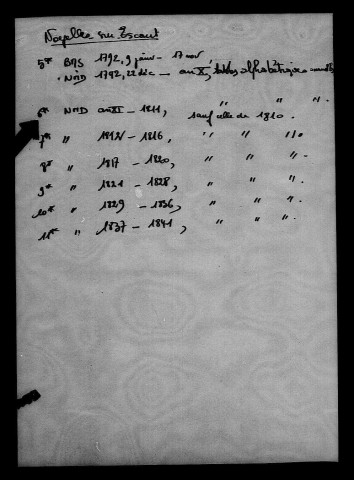 Noyelles sur Escaut
5* BMS 1792, 9 janv - 17 nov
. NMD 1792, 22 déc - an X, tables alphabétiques annuelles
6* NMD an XI - 1811, " " ".
sauf celle de 1810.
7* " 1812 - 1816, " " " .
8* " 1817 - 1820, " " ".
9* " 1821 - 1828, " " ".
10* " 1829 - 1836, " " ".
11* " 1837 - 1841, " " ".